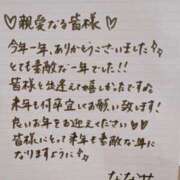 ♡親愛なる皆様♡
今年一年、ありがとうございました！！
とても素敵な一年でした！！
皆様と出逢えて嬉しかったです
来年も何卒宜しくお願い致します！
良いお年をお迎えください♡
皆様にとって来年も素敵な年に
なりますように
ななせ